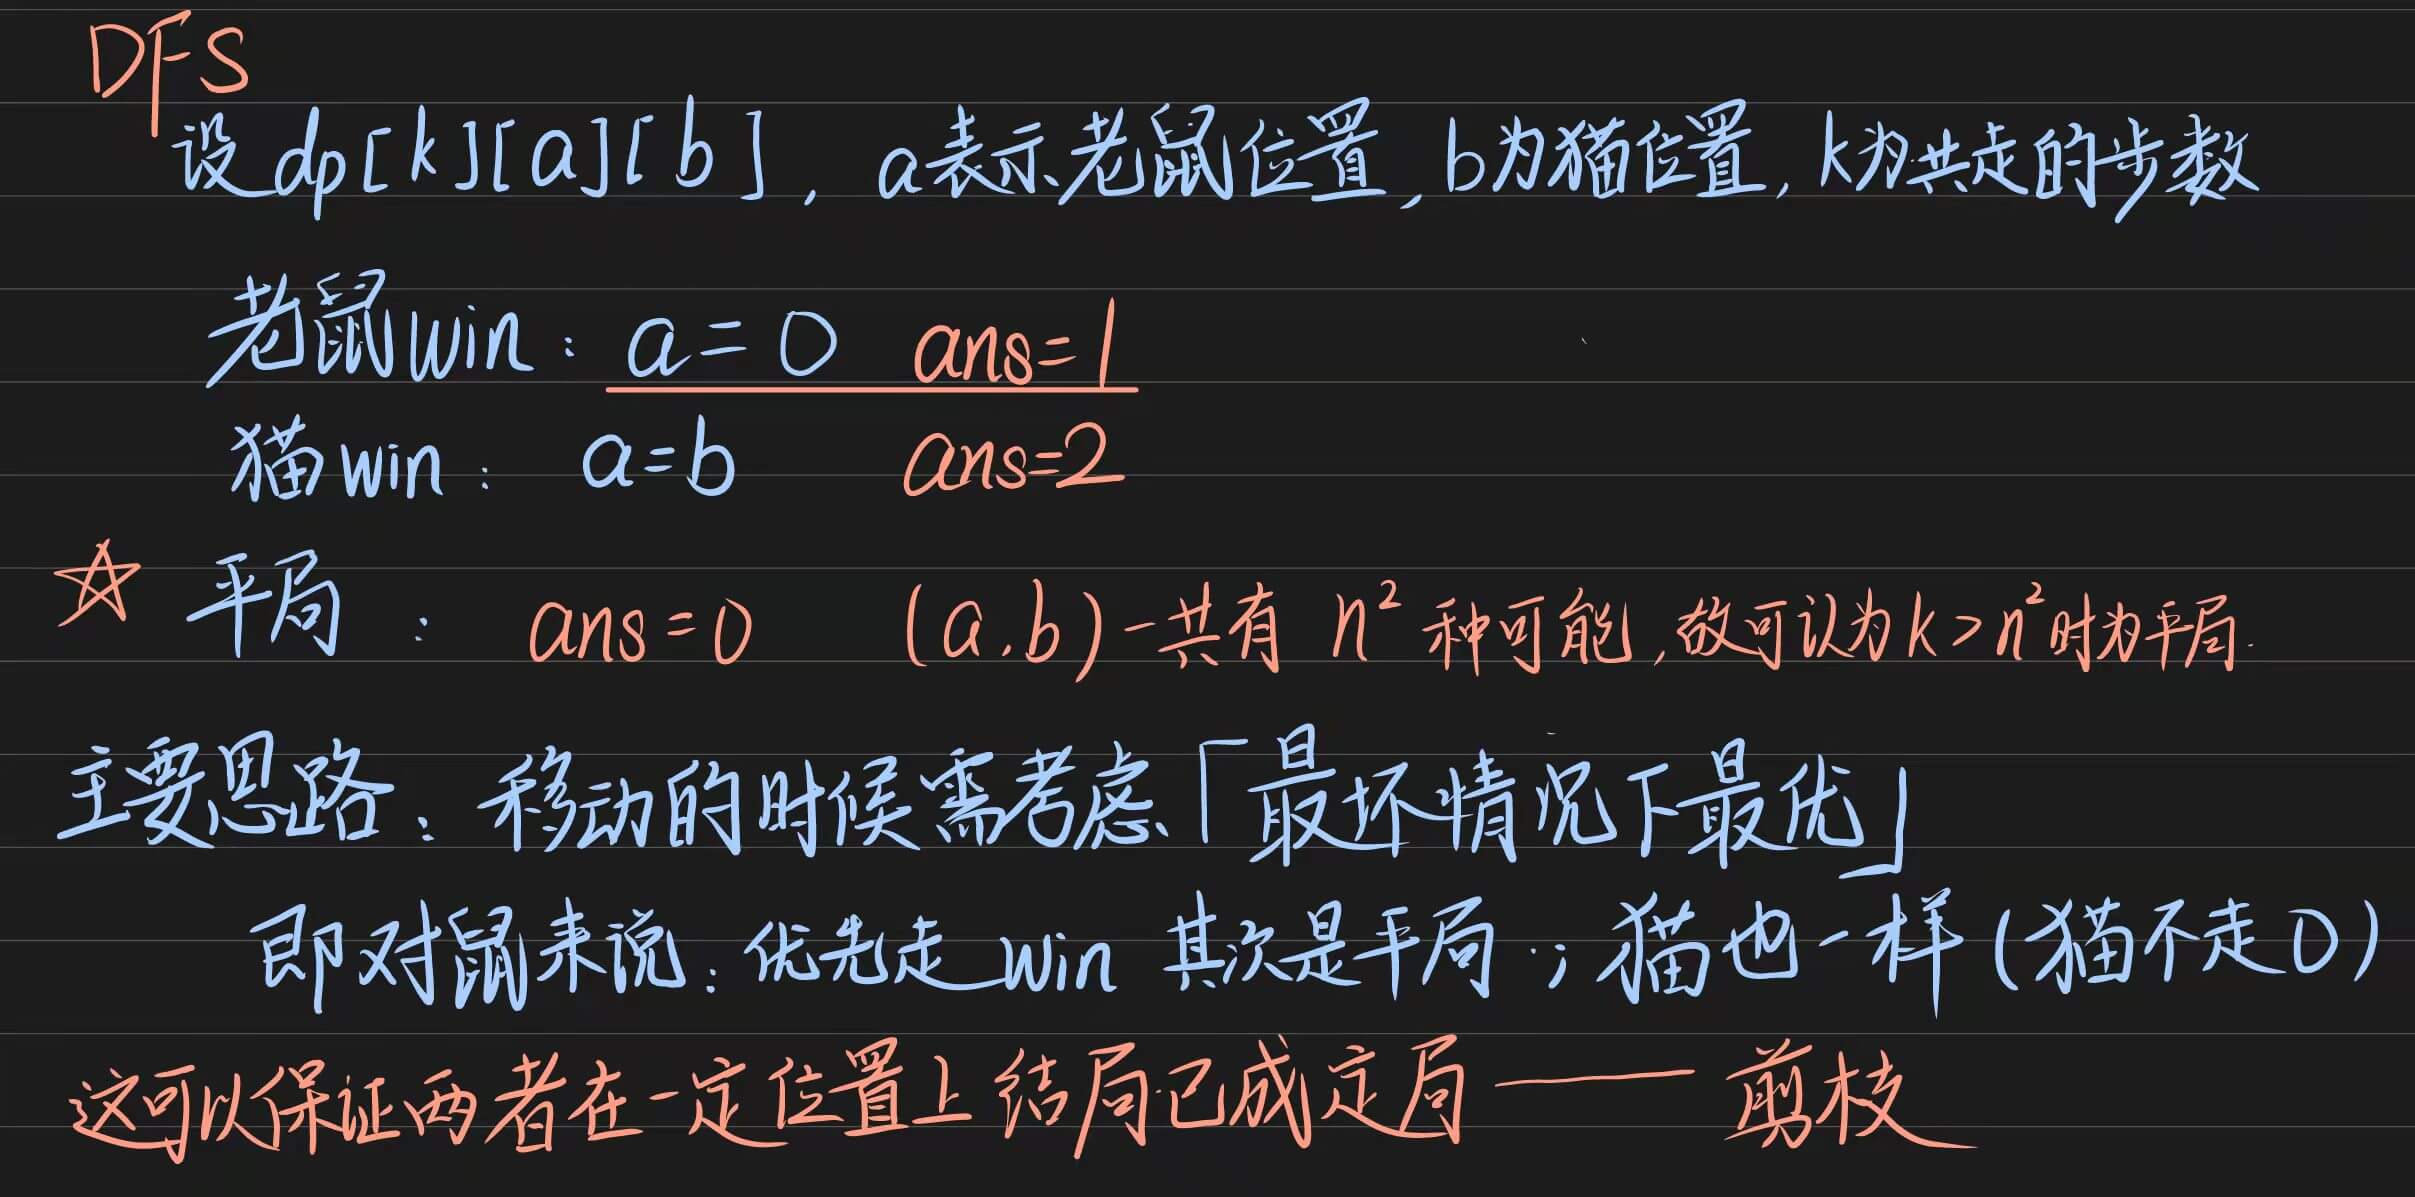 DFS
设 dp[k][a][b], a表示老鼠位置,b为猫位置,k为共走的步数
老鼠win: a=0 ans=1
猫win: a=b ans=2
☆ 平局: ans=0 (a.b)一共有 n²种可能,故可认为k>n²时为平局.
主要思路:移动的时候需考虑「最坏情况下最优」
即对鼠来说:优先走win 其次是平局;猫也一样(猫不走0)
这可以保证两者在一定位置上结局已成定局——剪枝